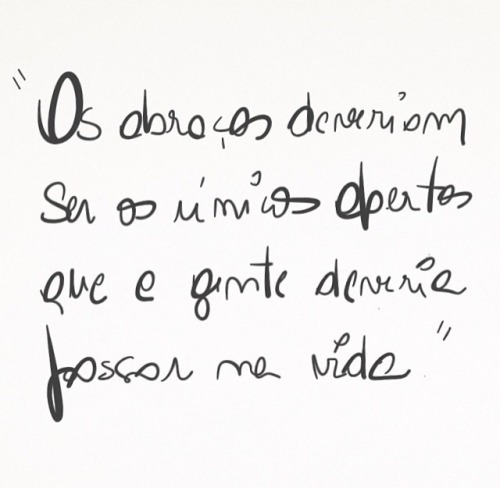 "Os abraços deveriam
Ser os únicos apertos
que a gente deveria
passar na vida"